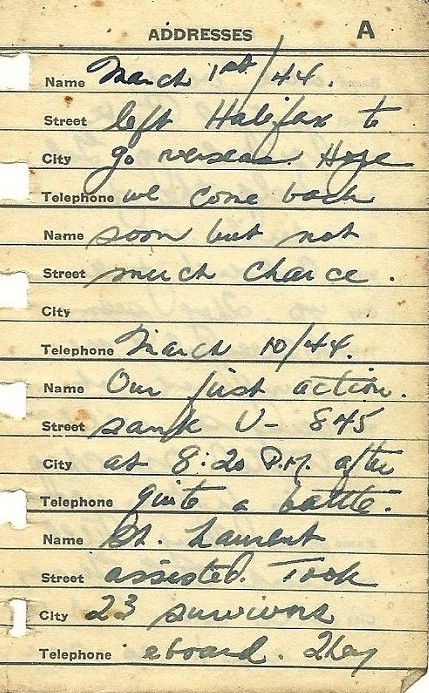 ADDRESSES A
Name March 1st/44.
Street left Halifax to
City go overseas. Hope
Telephone we come back
Name soon but not
Street much chance.
City
Telephone March 10/44.
Name Our first action.
Street sank U-845
City at 8:20 P.M. after
Telephone quite a battle.
Name St. Laurent
Street assisted. Took
City 23 survivors
Telephone aboard. They